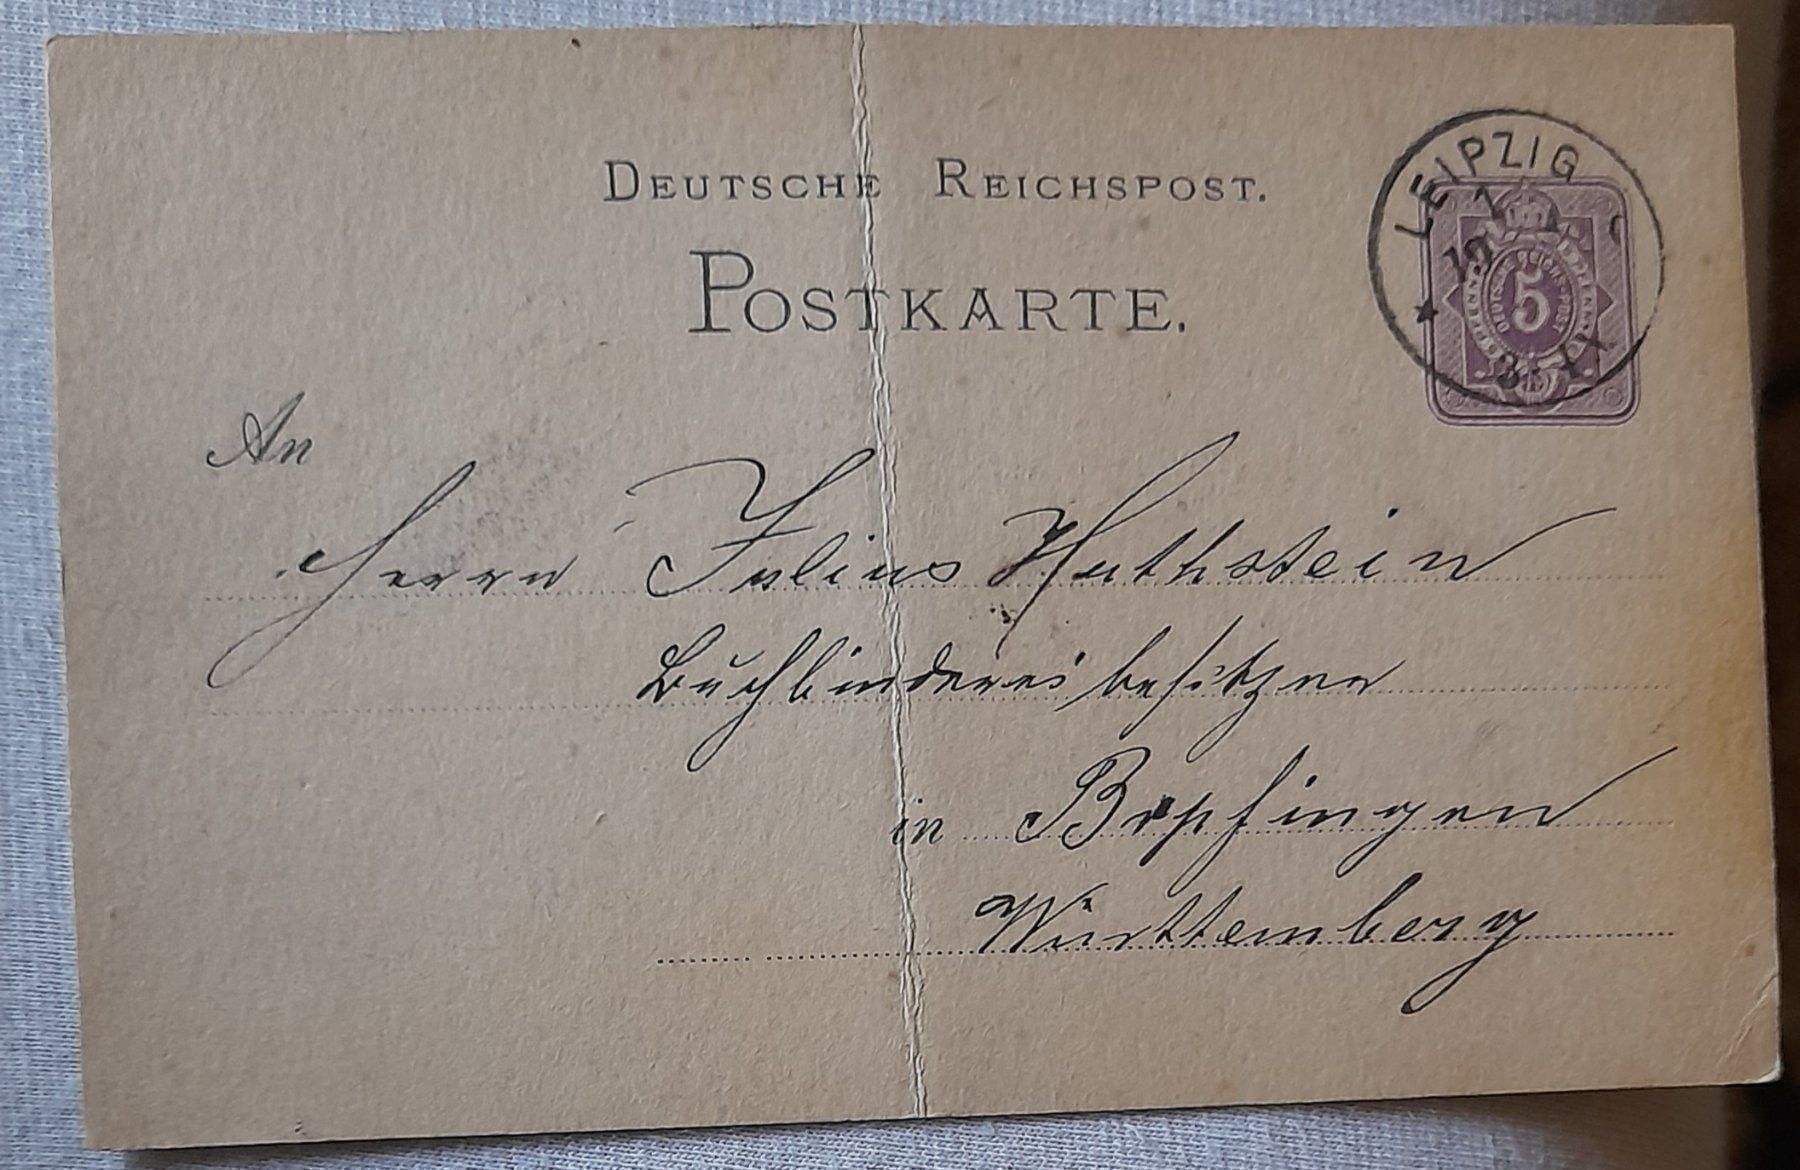 DEUTSCHE REICHSPOST.
POSTKARTE.
LEIPZIG
5
DEUTSCHE REICHS-POST
An
Herrn Julius Huthstein
Buchbindereibesitzer
in Bopfingen
Württemberg